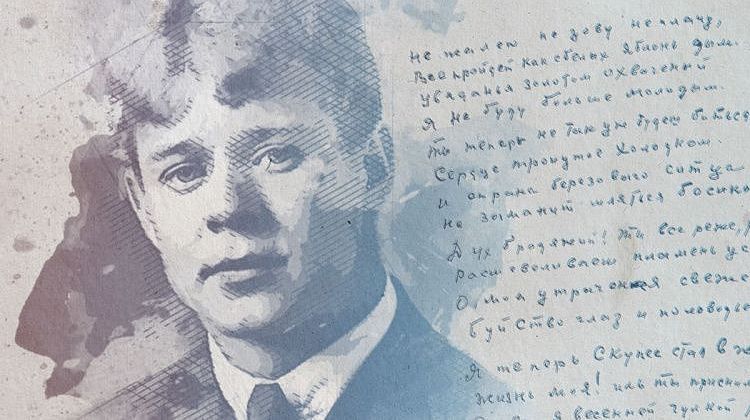 Не жалею не зову не плачу,
Все пройдет как с белых яблонь дым.
Увяданья золотом охваченный
Я не буду больше молодым.
Ты теперь не так уж будешь биться
Сердце тронутое холодком.
И страна березового ситца
Не заманит шляться босико
Дух бродяжий! ты все реже, р
Расшевеливаешь пламень ус
О моя утраченная свеже
буйство глаз и половодье
Я теперь скупее стал в ж
Жизнь моя! иль ты присни
я весенней гулкой